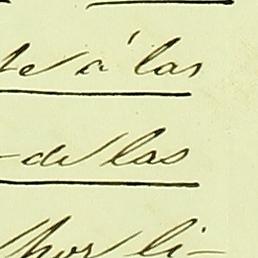 te á las
-de las
por li-